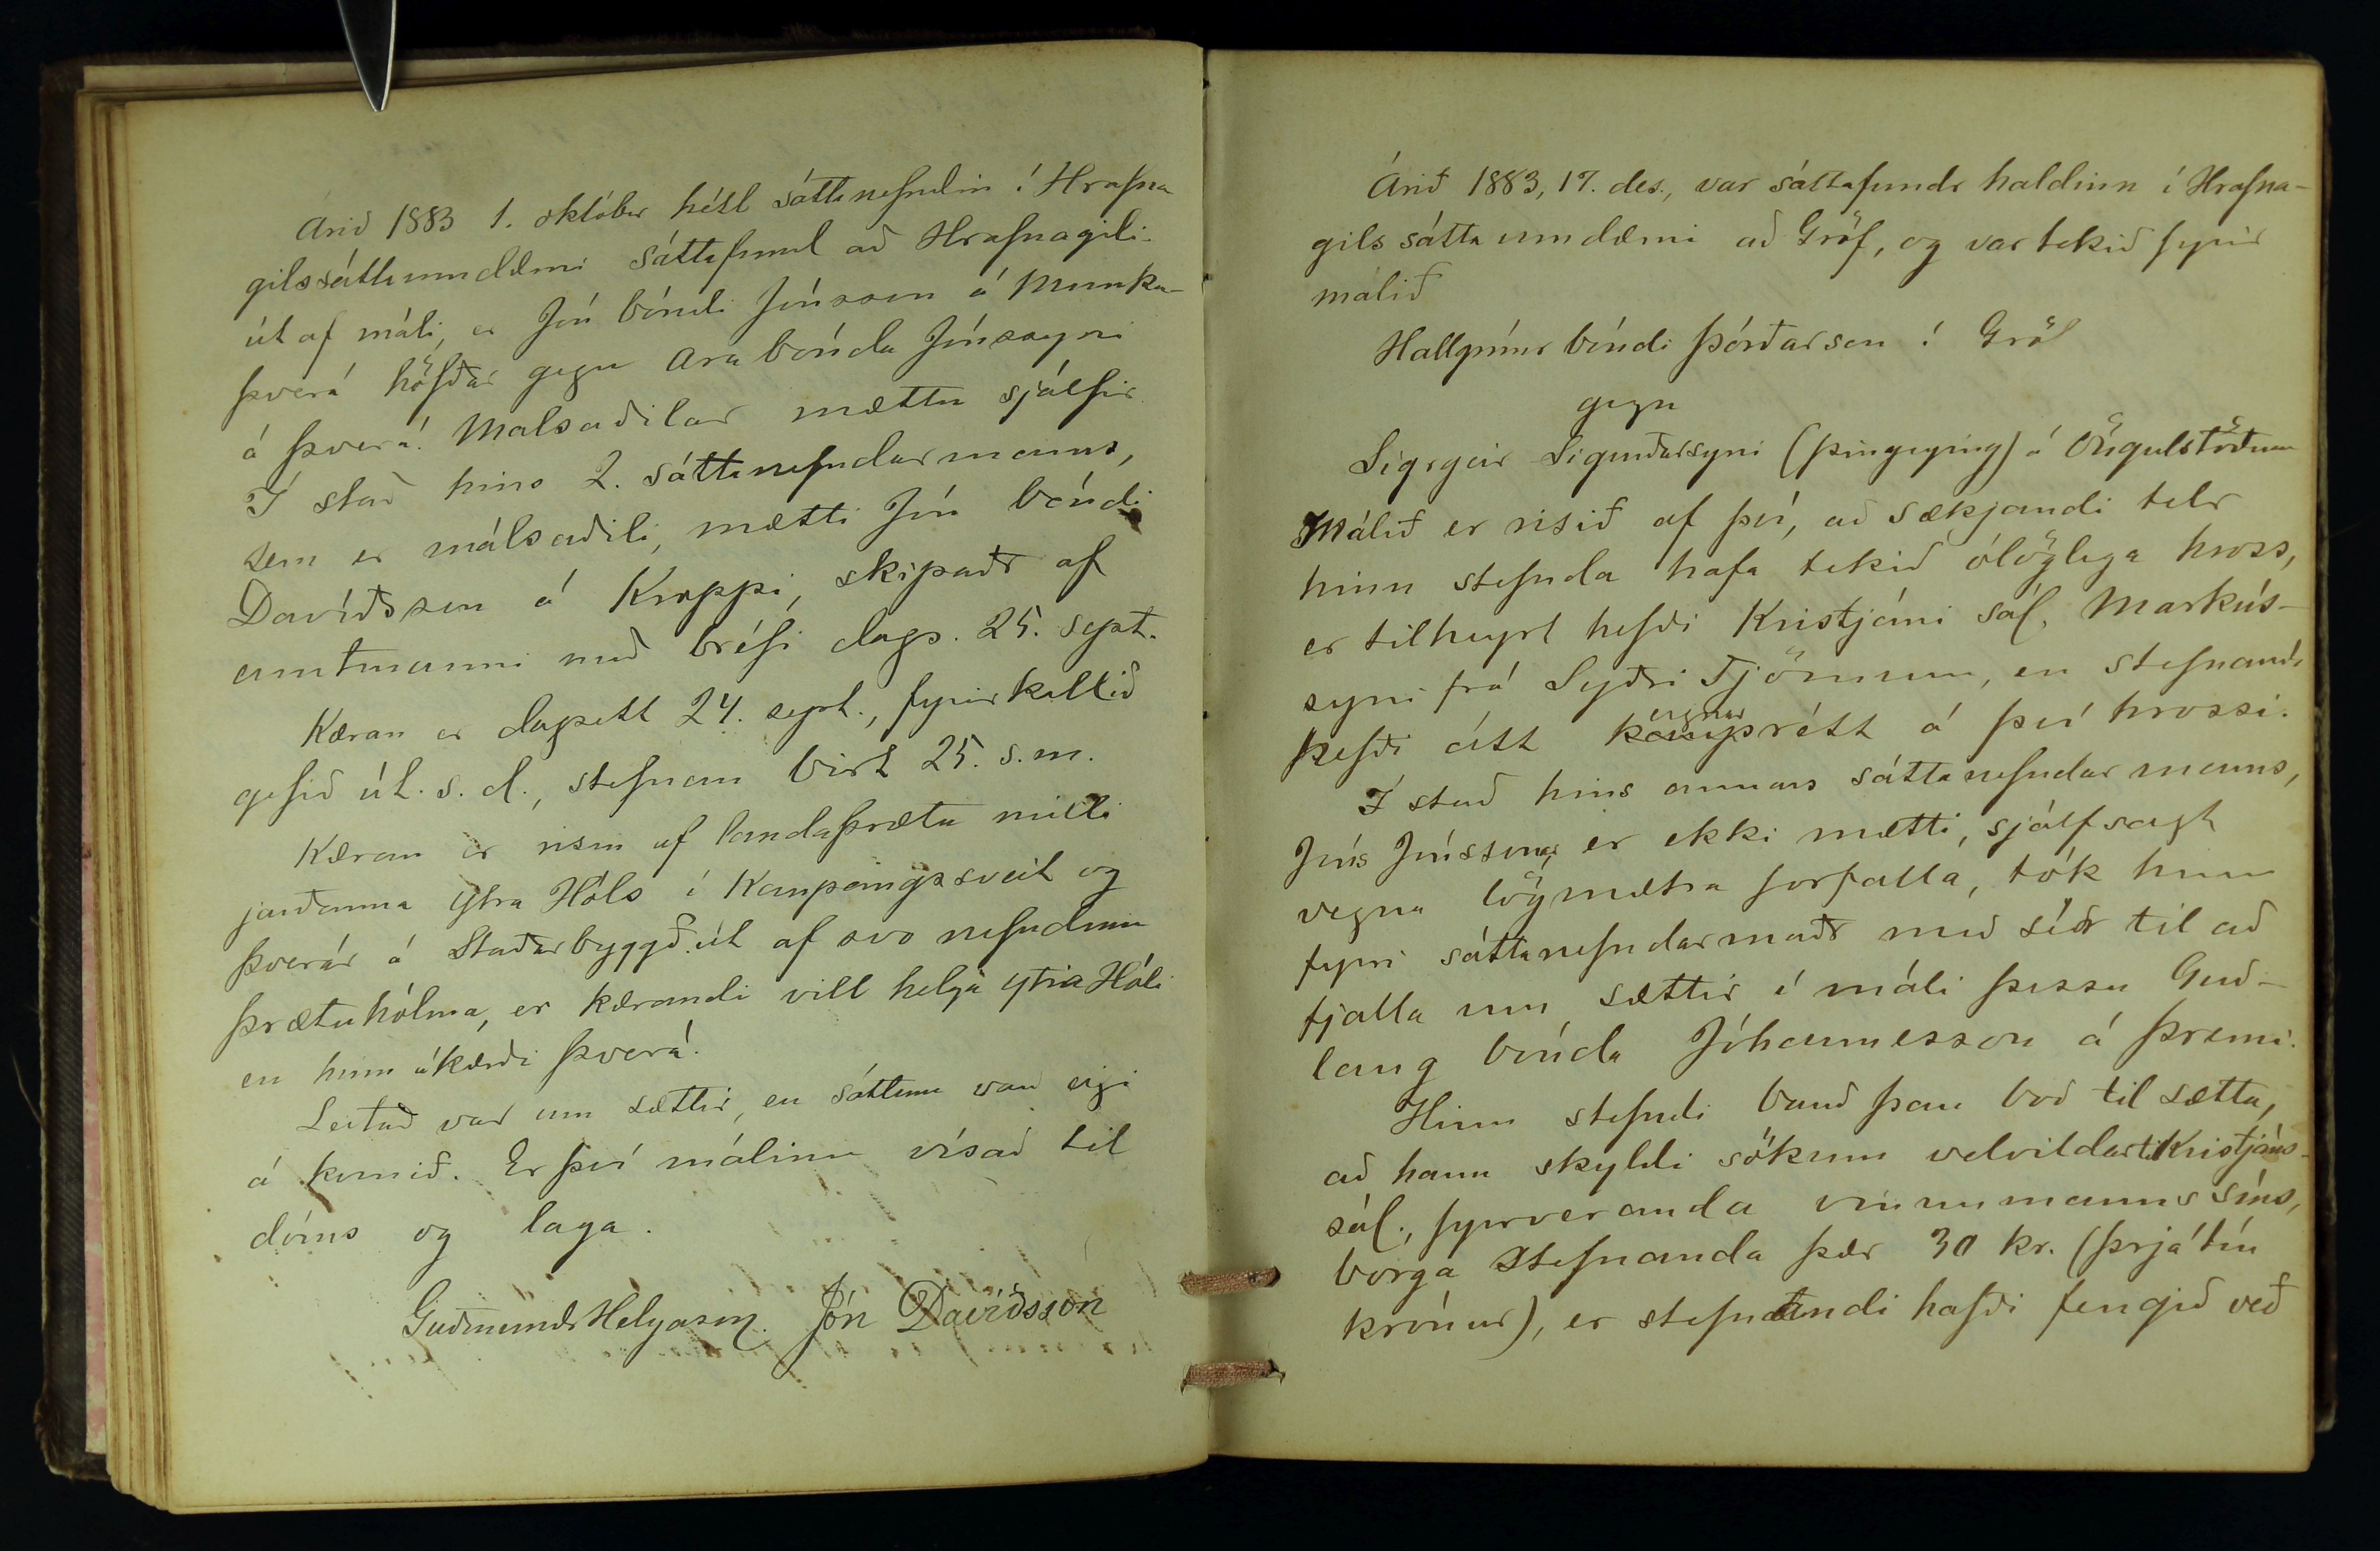 Árið 1883 1. október hélt sáttanefndin í Hrafna
gilssáttaumdæmi sáttafund að Hrafnagili
út af máli, er Jón bóndi Jónsson á Munka-
þverá höfðar gegn Ara bónda Jónssyni
á Þverá. Malsaðilar mættu sjálfir.
Í stað hins 2. sáttanefndarmanns,
sem er málsaðili, mætti Jón bóndi
Davíðsson á Kroppi, skipaðr af
amtmanni með bréfi dags. 25. sept.
Kæran er dagsett 24. sept., fyrirkallið
gefið út s. d., stefnan birt 25. s. m.
Kæran er risin af landaþrætu milli
jarðanna Ytra Hóls í Kaupangssveit og
Þverár á Staðarbyggð út af svo nefndum
Þrætuhólma, er kærandi vill helga Ytra Hóli
en hinn ákærði Þverá.
Leitað var um sættir, en sáttum varð eigi
á komið. Er því málinu vísað til
dóms og laga.
Guðmundr Helgason. Jón Davíðsson
Árið 1883, 17. des., var sáttafundr haldinn í Hrafna-
gils sáttaumdæmi að Gröf, og var tekið fyrir
málið
Hallgrímr bóndi Þórðarson í Gröf
gegn
Sigrgeir Sigurðarsyni á Öngulstöðum
Málið er risið af því, að sækjandi telr
hinn stefnda hafa tekið ólöglega hross,
er tilheyrt hefði Kristjáni sál. Markús-
syni frá Syðri Tjörnum, en stefnandi
hefði átt eignarrétt á því hrossi.
Í stað hins annars sáttanefndarmanns,
Jóns Jónssonar, er ekki mætti, sjálfsagt
vegna lögmætra forfalla, tók hinn
fyrri sáttanefndarmaðr með sér til að
fjalla um sættir í máli þessu Guð-
laug bónda Jóhannesson á Þremi.
Hinn stefndi bauð þau boð til sætta,
að hann skyldi sökum velvildar til Kristjáns
sál., fyrrveranda vinnumanns síns,
borga stefnanda þær 30 kr. (þrjátíu
krónur), er stefnandi hafði fengið við